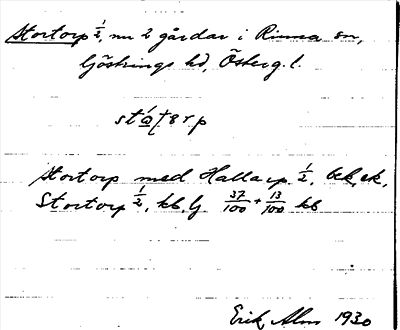 Stortorp ½, nu 2 gårdar i Rinna sn,
Göstrings hd, Österg. l.
Stortorp med Hallarp ½,
Stortorp ½, kb, lj 37/100 + 13/100 kb
Erik Alm 1930